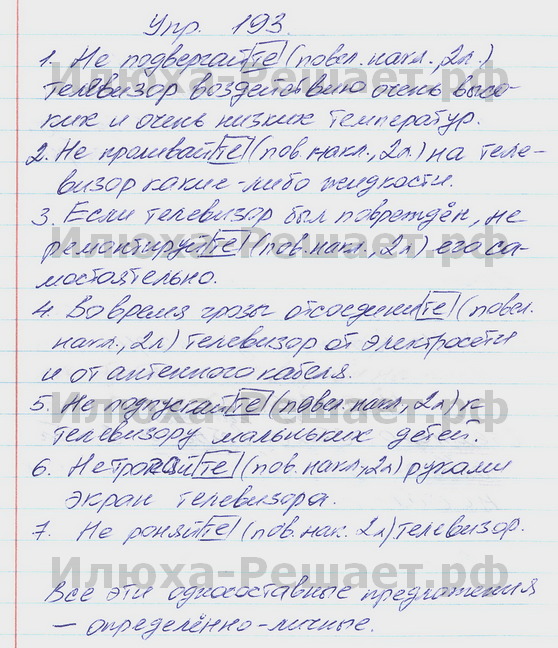 Упр. 193.
1. Не подвергайте (повел. накл., 2л.)
Илюха-Решает.рф
телевизор воздействию очень высо-
ких и очень низких температур.
2. Не проливайте (пов. накл., 2л) на теле-
визор какие-либо жидкости.
3. Если телевизор был повреждён, не
Илюха-Решает.рф
ремонтируйте (пов. накл., 2л) его са-
мостоятельно.
4. Во время грозы отсоедините (повел.
накл., 2л) телевизор от электросети
и от антенного кабеля.
Илюха-Решает.рф
5. Не подпускайте (повел. накл., 2л) к
телевизору маленьких детей.
6. Не трогайте (пов. накл, 2л) руками
экран телевизора.
7. Не роняйте (пов. нак. 2л) телевизор.
Илюха-Решает.рф
Все эти односоставные предложения
– определённо-личные.